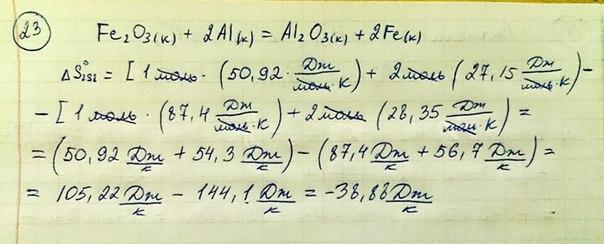 23 Fe₂O₃(к) + 2Al(к) = Al₂O₃(к) + 2Fe(к)
ΔS°₂₉₈ = [1 моль · (50,92 · Дж/моль·К) + 2 моль (27,15 Дж/моль·К) –
– [1 моль · (87,4 Дж/моль·К) + 2 моль (28,35 Дж/моль·К) =
= (50,92 Дж/К + 54,3 Дж/К) – (87,4 Дж/К + 56,7 Дж/К) =
= 105,22 Дж/К – 144,1 Дж/К = -38,88 Дж/К